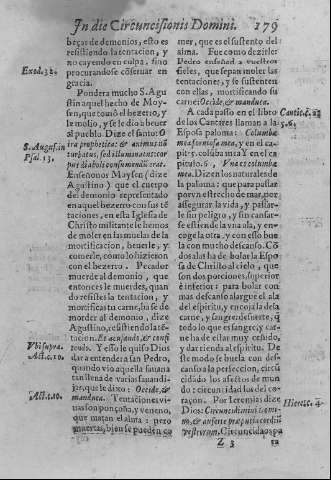 In die Circuncisionis Domini. 179
beças de demonios, esto es
resistiendo la tentacion, y
no cayendo en culpa, sino
procurandose cōseruar en
gracia.
Exod. 32.
Pondera mucho S. Agus
tin aquel hecho de Moy-
sen, que tomò el bezerro, y
le molio, y se le dio a beuer
al pueblo. Dize el santo: O
ira prophetica: & animus nō
turbatus, sed illuminatus: cor
pus diaboli consumendū erat.
S. Augustin
Psal. 13.
Enseñonos Moysen (dize
Agustino) que el cuerpo
del demonio representado
en aquel bezerro con sus tē
taciones, en esta Iglesia de
Christo militante le hemos
de moler en las muelas de la
mortificacion, beuerle, y
comerle, como lo hizieron
con el bezerro. Pecador
muerde al demonio, que
entonces le muerdes, quan
do resistes la tentacion, y
mortificas tu carne, no se de
morder al demonio, dize
Agustino, resistiendo la tē-
tacion.
Y esto le quiso Dios
dar a entender a san Pedro,
quando vio aquella sauana
tan llena de varias sauandi-
jas, que le dixo: Occide, &
manduca. Tentaciones vi-
uas son ponçoña, y veneno,
que matan el alma: pero
muertas, bien se pueden co
Vbi supra.
Act. c. 10.
Act. c. 10.
mer, que es el sustento del
alma. Fue como dezir
Pedro enseñad a vuestros
fieles, que sepan moler las
tentaciones, y se sustenten
con ellas, mortificando su
carne: Occide, & manduca.
A cada passo en el libro
de los Cantares llaman a la
Esposa paloma: Columba
mea formosa mea, y en el ca-
pit. 5. columba mea Y en el ca
pitulo. 6. Vna est columba
mea. Dizen los naturales de
la paloma: que para passar
por vn estrecho de mar, por
assegurar la vida, y passar-
le sin peligro, y sin cansar-
se estiende la vna ala, y en-
coge la otra, y con esso bue
la con mucho descanso. Cō
dos alas ha de bolar la Espo
sa de Christo al cielo, que
son dos porciones, superior
è inferior: para bolar con
mas descanso alargue el ala
del espiritu, y encoja la de la
carne, y sangre desuerte, q̄
todo lo que es sangre, y car-
ne ha de estar muy cenido,
y dar rienda al espiritu. De
ste modo se buela con des-
canso a la perfeccion, circū
cidados los afectos de mun
do: circuncidad los del co-
raçon. Por Ieremias dize
Dios: Circuncidimini Domi-
no, & auferte præputia cordiū
vestrorum. Circuncidaos pa
Z 3 ra
Cantic. c. 2.
5. 6.
Hierem. 4.